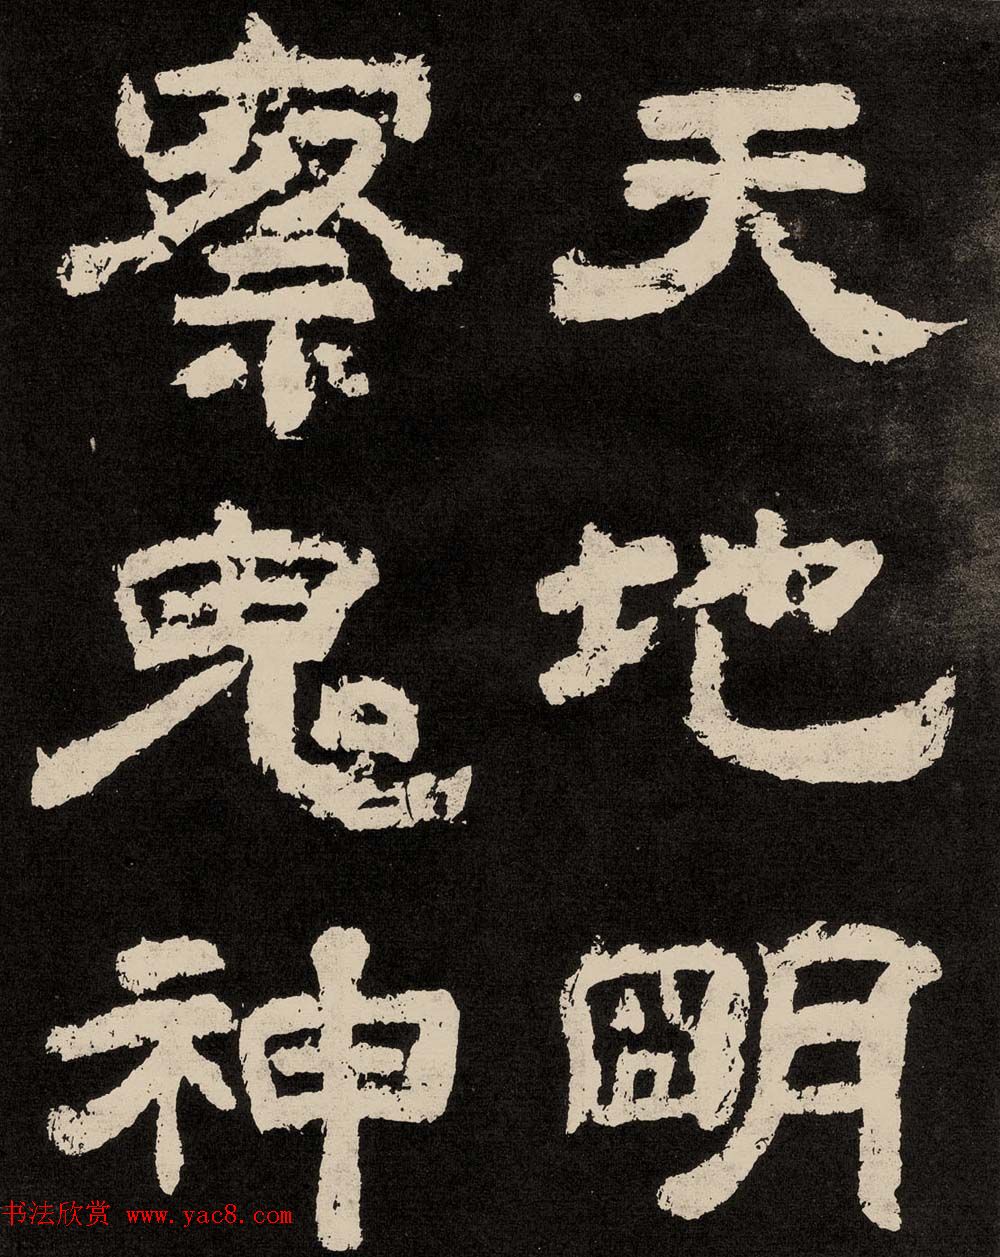 天地明
察鬼神
书法欣赏 www.yac8.com